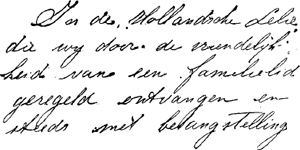 In de Hollandsche Lelie
die wy door de vriendelijk-
heid van een familielid
geregeld ontvangen en
steeds met belangstelling